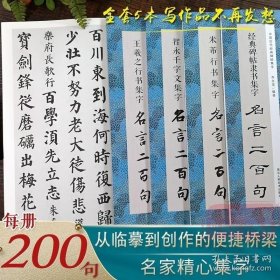 全套5本 写作品不再发愁
百川東到海何時復西歸
少壮不努力老大徒傷悲
樂府長歌行
百學須先立志
寶劍鋒從磨礪出梅花
王羲之行书集字
名言二百句
智永千字文集字
名言二百句
米芾行书集字
名言二百句
经典碑帖隶书集字
名言二百句
每册
200句
从临摹到创作的便捷桥梁
名家精心集字